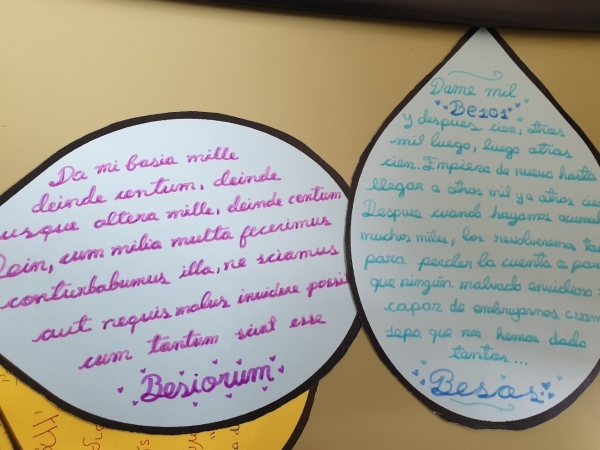 Da mi basia mille
deinde centum, deinde
usque altera mille, deinde centum
Dein, cum milia multa fecerimus
conturbabumus illa, ne sciamus
aut nequis malus invidere possit
cum tantum sciat esse
Besiorum
Dame mil
Besos
y despues cien, otros
mil luego, luego otros
cien. Empieza de nuevo hasta
llegar a otros mil y a otros cien
Despues cuando hayamos acumul
muchos miles, los revolveremos
para perder la cuenta o para
que ningún malvado envidioso
capaz de embrujarnos cuan
sepa que nos hemos dado
tantos...
Besos